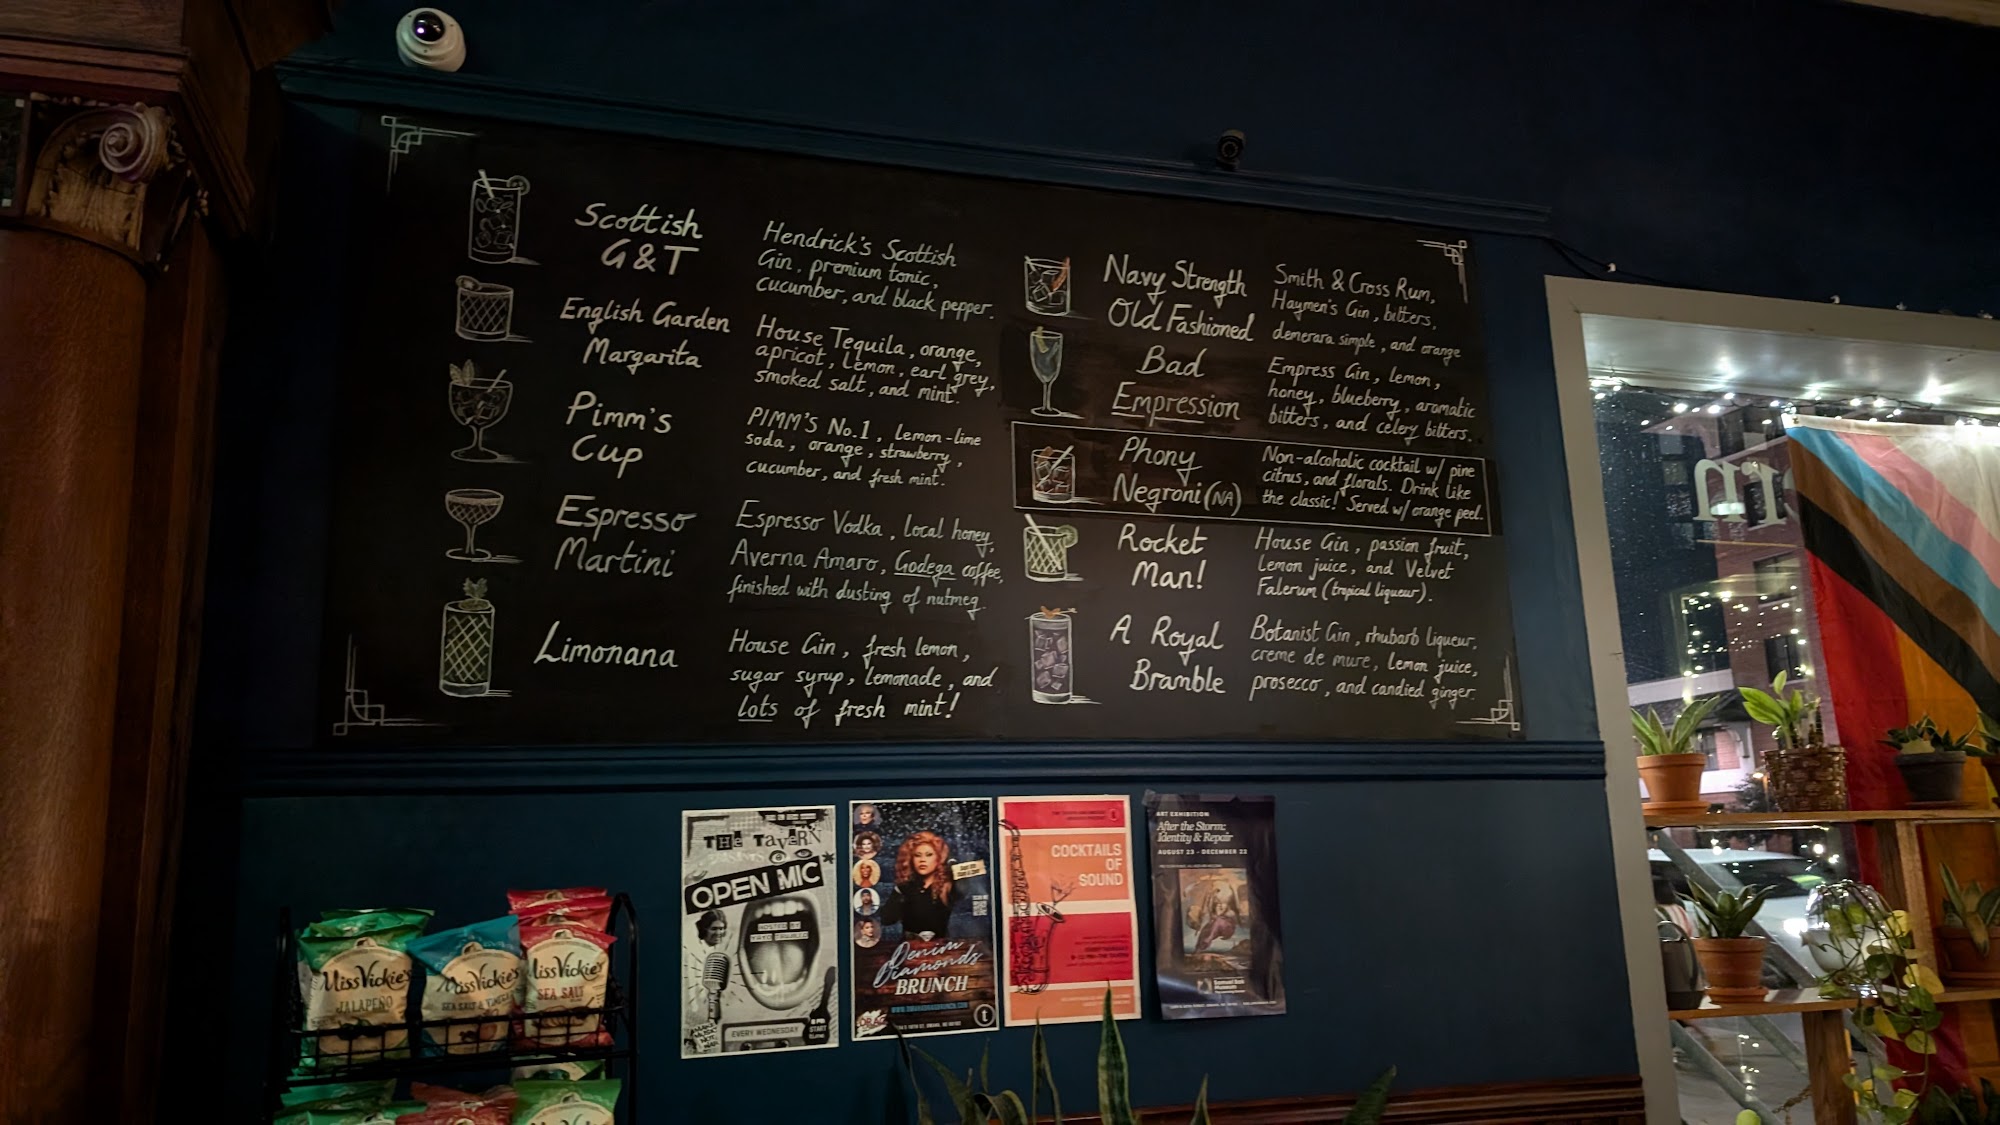 Scottish
G&T
Hendrick's Scottish
Gin, premium tonic,
cucumber, and black pepper.
English Garden
Margarita
House Tequila, orange,
apricot, Lemon, earl grey,
smoked salt, and mint.
Pimm's
Cup
PIMM'S No.1, lemon-lime
soda, orange, strawberry,
cucumber, and fresh mint.
Espresso
Martini
Espresso Vodka, local honey,
Averna Amaro, Godega coffee,
finished with dusting of nutmeg.
Limonana
House Gin, fresh lemon,
sugar syrup, lemonade, and
lots of fresh mint!
Navy Strength
Old Fashioned
Smith & Cross Rum,
Haymen's Gin, bitters,
demerara simple, and orange
Bad
Empression
Empress Gin, lemon,
honey, blueberry, aromatic
bitters, and celery bitters.
Phony
Negroni (NA)
Non-alcoholic cocktail w/ pine
citrus, and florals. Drink like
the classic! Served w/ orange peel.
Rocket
Man!
House Gin, passion fruit,
Lemon juice, and Velvet
Falerum (tropical liqueur).
A Royal
Bramble
Botanist Gin, rhubarb liqueur,
creme de mure, lemon juice,
prosecco, and candied ginger.
rn
THE TAVERN
OPEN MIC
HOSTED BY
EVERY WEDNESDAY
8 PM
START
Denim
Diamonds
BRUNCH
t
COCKTAILS
OF
SOUND
ART EXHIBITION
After the Storm:
Identity & Repair
AUGUST 23 - DECEMBER 22
Miss Vickie's
JALAPEÑO
Miss Vickie's
SEA SALT &
Miss Vickie's
SEA SALT